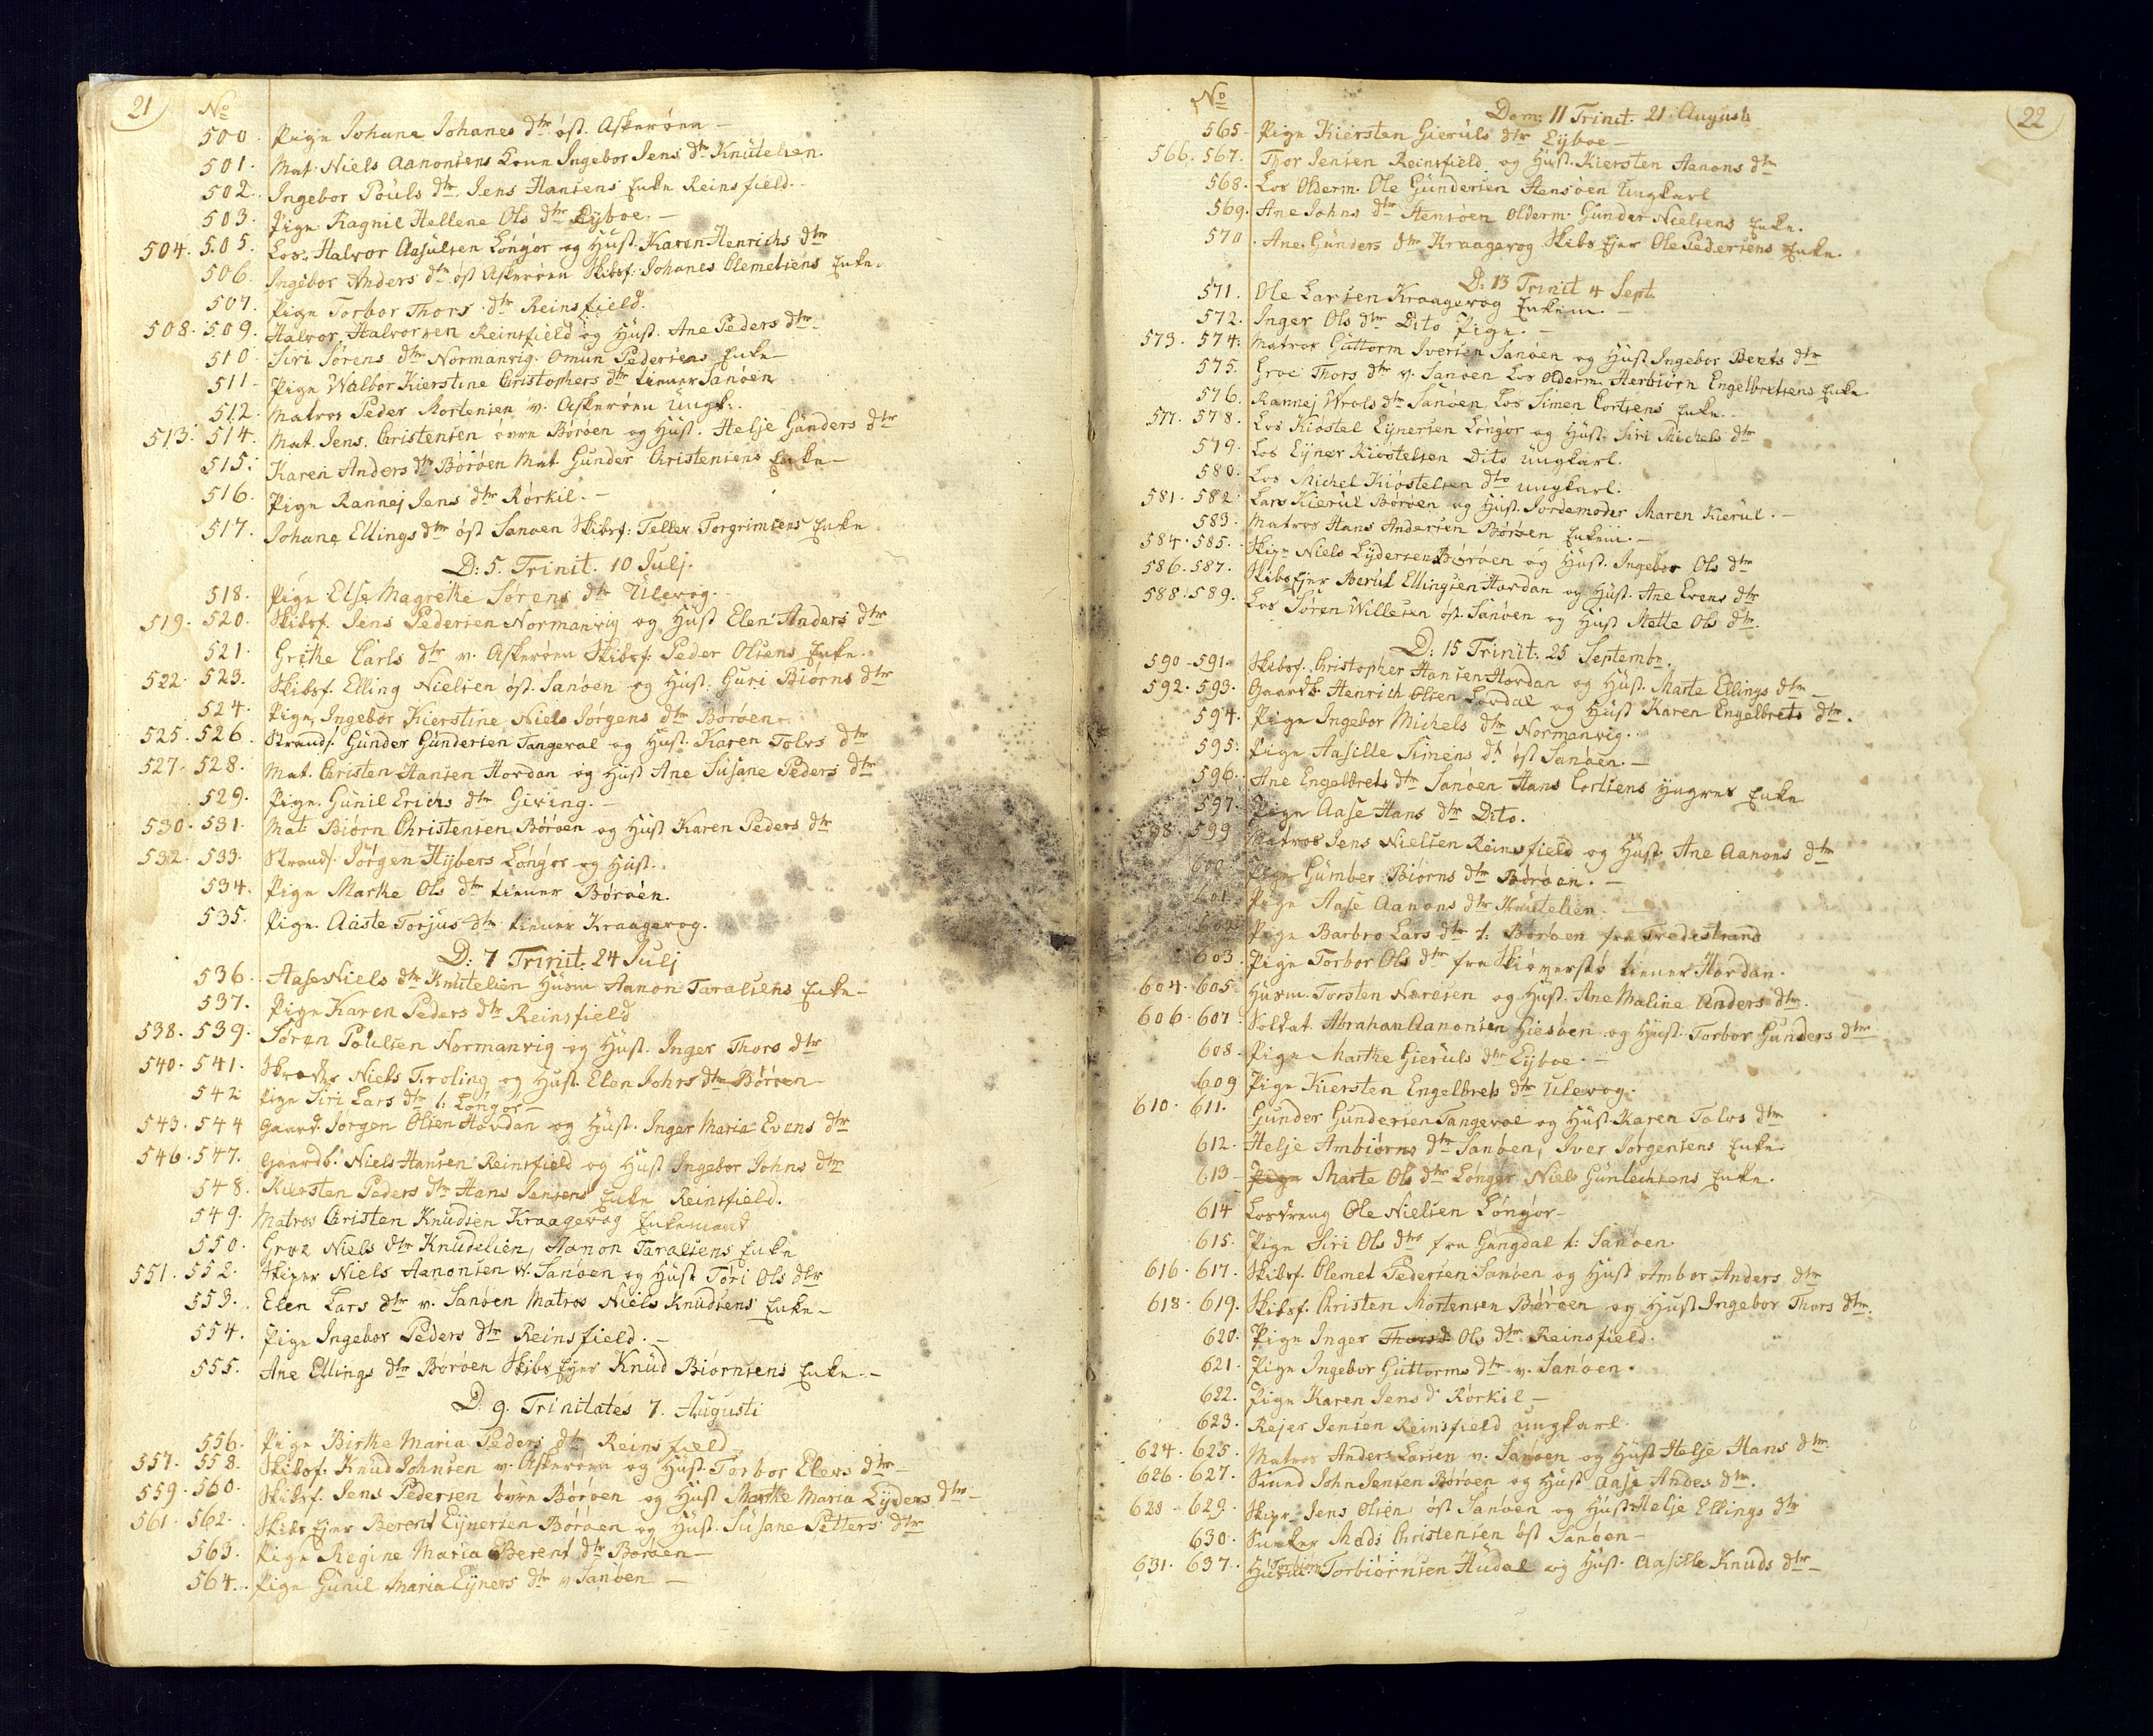 21
No
500. Pige Johane Johanes dtr öst. Askeröen –
501. Mat. Niels Aanonsens Kone Ingebor Jens dtr Knutelien.
502. Ingebor Pouls dtr Jens Hansens Enke Reinsfield.
503. Pige Ragnil Hellene Ols dtr Eyboe. –
504. 505. Los. Halvor Aasulsen Löngör og Hust. Karen Henrichs dtr
506. Ingebor Anders dtr öst Askeröen Skibsf. Johanes Clemetsens Enke.
507. Pige Torbor Thors dtr Reinsfield.
508. 509. Halvor Halvorsen Reinsfield og Hust. Ane Peders dtr
510. Siri Sörens dtr Normanvig. Omun Pedersens Enke
511. Pige Walbor Kierstine Christophers dtr tiener Sanöen
512. Matros Peder Mortensen v. Askeröen Ungk.
513. 514. Mat. Jens Christensen övre Böröen og Hust. Helje Gunders dtr
515. Karen Anders dtr Böröen Mat. Gunder Christensens Enke –
516. Pige Rannej Jens dtr Rörkil. –
517. Johane Ellings dtr öst Sanoen Skibsf: Tellev Torgrimsens Enke
D: 5. Trinit. 10 Julj.
518. Pige Else Magrethe Sörens dtr Ulevog.
519. 520. Skibsf. Jens Pedersen Normanvig og Hust Elen Anders dtr
521. Grethe Carls dtr v. Askeröen Skibsf. Peder Olsens Enke.
522. 523. Skibsf. Elling Nielsen öst. Sanöen og Hust. Guri Biörns dtr
524. Pige Ingebor Kierstine Niels Jörgens dtr Böröen
525. 526. Strands. Gunder Gundersen Tangeval og Hust. Karen Tolvs dtr
527. 528. Mat. Christen Hansen Hovdan og Hust Ane Susane Peders dtr
529. Pige. Gunil Erichs dtr Giving. –
530. 531. Mat Biörn Christensen Böröen og Hust Karen Peders dtr
532. 533. Strands. Jörgen Hybers Löngör og Hust.
534. Pige Marthe Ols dtr tiener Böröen.
535. Pige. Aaste Torjus dtr tiener Kraagevog.
D: 7 Trinit. 24 Julj
536. Aase Niels dtr Knutelien Husm Aanon Taralsens Enke –
537. Pige Karen Peders dtr Reinsfield
538. 539. Sören Poulsen Normanvig og Hust. Inger Thors dtr
540. 541. Niels Troling og Hust. Elen Johrs dtr Böröen
542 Pige Siri Lars dtr t: Löngör –
543. 544 Gaard. Jörgen Olsen Hovdan og Hust. Inger Maria Evens dtr
546. 547. Gaardb. Niels Hansen Reinsfield og Hust Ingebor Johns dtr
548. Kiersten Peders dtr Hans Jensens Enke Reinsfield.
549. Matros Christen Knudsen Kraagevog Enkemand
550. Groe Niels dtr Knudelien, Aanon Taralsens Enke
551. 552. Skiper Niels Aanonsen v. Sanöen og Hust Tori Ols dtr
553. Elen Lars dtr v. Sanöen Matros Niels Knudsens Enke –
554. Pige Ingebor Peders dtr Reinsfield. –
555. Ane Ellings dtr Böröen Skibs Ejer Knud Biörnsens Enke –
D. 9. Trinitates 7. Augusti
556. Pige Birthe Maria Peders dtr Reinsfield
557. 558. Skibsf. Knud Johnsen v. Askeröen og Hust. Torbor Elevs dtr –
559. 560. Skibsf. Jens Pedersen övre Böröen og Hust Marthe Maria Lyders dtr –
561. 562. Skibs Ejer Berent Eynersen Böröen og Hust. Susane Petters dtr
563. Pige Regine Maria Berent dtr Böröen –
564. Pige Gunil Maria Eyners dtr v Sanöen –
22
No
Dom: 11 Trinit. 21 Augusti
565. Pige Kiersten Gieruls dtr Eyboe –
566. 567. Thor Jensen Reinsfield og Hust. Kiersten Aanons dtr
568. Los Olderm. Ole Gundersen Stensöen Ungkarl
569. Ane Johns dtr Stensöen Olderm. Gunder Nielsens Enke.
570. Ane Gunders dtr Kraagevog Skibs Ejer Ole Pedersens Enke.
D: 13 Trinit 4 Sept.
571. Ole Larsen Kraagevog Enkem. –
572. Inger Ols dtr Dito Pige. –
573. 574. Matros Guttorm Iversen Sanöen og Hust Ingebor Bents dtr
575. Groe Thors dtr v. Sanöen Los Olderm. Herbiörn Engelbretsens Enke
576. Rannej Wrols dtr Sanöen, Los Simen Cortsens Enke. –
577. 578. Los Kiöstel Eynersen Löngör og Hust. Siri Michels dtr
579. Los Eyner Kiöstelsen Dito ungkarl.
580. Los Michel Kiöstelsen dto ungkarl.
581. 582. Lars Kierul Böröen og Hust. Jordemoder Maren Kierul. –
583. Matros Hans Andersen Böröen Enkem. –
584. 585. Skipr Niels Lydersen Böröen og Hust. Ingebor Ols dtr
586. 587. Skibs Ejer Berul Ellingsen Hovdan og Hust. Ane Evens dtr
588. 589. Los Sören Willesen öst. Sanöen og Hust Mette Ols dtr
D: 15 Trinit. 25 Septembr.
590 – 591. Skibsf. Christopher Hansen Hovdan og Hust. Marte Ellings dtr –
592. 593. Gaardb. Henrich Olsen Lovdal og Hust Karen Engelbrets dtr.
594. Pige Ingebor Michels dtr Normanvig.
595. Pige Aasille Simens dtr öst Sanöen. –
596. Ane Engelbrets dtr Sanöen Hans Cortsens yngres Enke
597. Pige Aase Hans dtr Dito.
598. 599 Matros Jens Nielsen Reinsfield og Hust. Ane Aanons dtr
600. Pige Gumber Biörns dtr Böröen. –
601. Pige Aase Aanons dtr Knutelien. –
602. Pige Barbro Lars dtr t: Böröen fra Tredestrand
603. Pige Torbor Ols dtr fra tiener Hovdan.
604. 605. Husm. Torsten Naresen og Hust. Ane Maline Anders dtr.
606. 607. Soldat. Abraham Aanonsen Giesöen og Hust. Torbor Gunders dtr
608. Pige Marthe Gieruls dtr Eyboe. –
609 Pige Kiersten Engelbrets dtr Ulevog.
610. 611. Gunder Gundersen Tangevae og Hust Karen Tolvs dtr
612. Helje Ambiörns dtr Sanöen, Iver Jörgensens Enke.
613 – Pige Marte Ols dtr Löngör Niels Gunlechsens Enke.
614 Losdreng Ole Nielsen Löngör –
615. Pige Siri Ols dtr fra Gangdal t: Sanöen.
616. 617. Skibsf. Clemet Pedersen Sanöen og Hust Ambor Anders dtr
618. 619. Skibsf. Christen Mortensen Böröen og Hust Ingebor Thors dtr.
620. Pige Inger Thorsd Ols dtr Reinsfield.
621. Pige Ingebor Guttorms dtr v. Sanöen.
622. Pige Karen Jens d Rörkil –
623. Rejer Jensen Reinsfield ungkarl.
624. 625. Matros Anders Larsen v. Sanöen og Hust Helje Hans dtr.
626. 627. John Jensen Böröen og Hust Aase Andes dtr.
628 – 629. Skipr. Jens Olsen öst Sanöen og Hust Helje Ellings dtr
630. Mads Christensen öst Sanöen –
631. 637. Husm. Torbiörn Torbiörnsen Hudal og Hust. Aasille Knuds dtr –